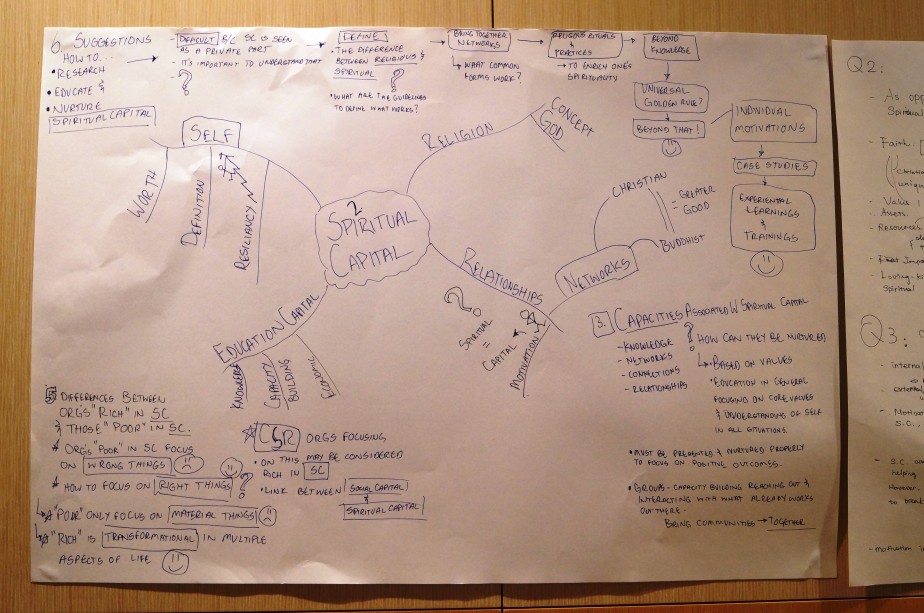 6. SUGGESTIONS
HOW TO...
• RESEARCH
• EDUCATE &
• NURTURE
SPIRITUAL CAPITAL
- DIFFICULT B/C SC IS SEEN
AS A PRIVATE PART
- IT'S IMPORTANT TO UNDERSTAND THAT
?
DEFINE
• THE DIFFERENCE
BETWEEN RELIGIOUS &
SPIRITUAL
?
• WHAT ARE THE GUIDELINES
TO DEFINE WHAT WORKS?
BRING TOGETHER
NETWORKS
WHAT COMMON
FORMS WORK?
RELIGIOUS RITUALS
&
PRACTICES
TO ENRICH ONE'S
SPIRITUALITY
BEYOND
KNOWLEDGE
UNIVERSAL
GOLDEN RULE?
BEYOND THAT!
INDIVIDUAL
MOTIVATIONS
CASE STUDIES
EXPERIENTIAL
LEARNINGS
&
TRAININGS
2
SPIRITUAL
CAPITAL
SELF
WORTH
DEFINITION
RESILIANCY
RELIGION
CONCEPT
GOD
RELATIONSHIPS
?
SPIRITUAL
=
CAPITAL
MOTIVATION
NETWORKS
CHRISTIAN
BUDDHIST
= GREATER
GOOD
EDUCATION CAPITAL
KNOWLEDGE
CAPACITY
BUILDING
ECONOMIC
3. CAPACITIES ASSOCIATED W SPIRITUAL CAPITAL
- KNOWLEDGE
- NETWORKS
- CONNECTIONS
- RELATIONSHIPS
? HOW CAN THEY BE NURTURED
• BASED ON VALUES
• EDUCATION IN GENERAL
FOCUSING ON CORE VALUES
& UNDERSTANDING OF SELF
IN ALL SITUATIONS.
• MUST BE PRESENTED & NURTURED PROPERLY
TO FOCUS ON POSITIVE OUTCOMES.
• GROUPS - CAPACITY BUILDING REACHING OUT &
INTERACTING WITH WHAT ALREADY WORKS
OUT THERE -
BRING COMMUNITIES → TOGETHER
5 DIFFERENCES BETWEEN
ORG'S "RICH" IN SC
& THOSE "POOR" IN SC.
* ORG'S "POOR" IN SC FOCUS
ON WRONG THINGS
* HOW TO FOCUS ON RIGHT THINGS ?
"POOR" ONLY FOCUS ON MATERIAL THINGS
"RICH" IS TRANSFORMATIONAL IN MULTIPLE
ASPECTS OF LIFE
CSR ORGS FOCUSING
• ON THIS MAY BE CONSIDERED
RICH IN SC
• LINK BETWEEN SOCIAL CAPITAL
&
SPIRITUAL CAPITAL
Q2:
- As opp
Spiritual
- Faith
uniqu
- Value
Assets.
- Resources
- Loving-k
Spiritual
Q3:
- interna
external
- Motiva
S.C..
- S.C.
helping
However,
to break
- motivation i